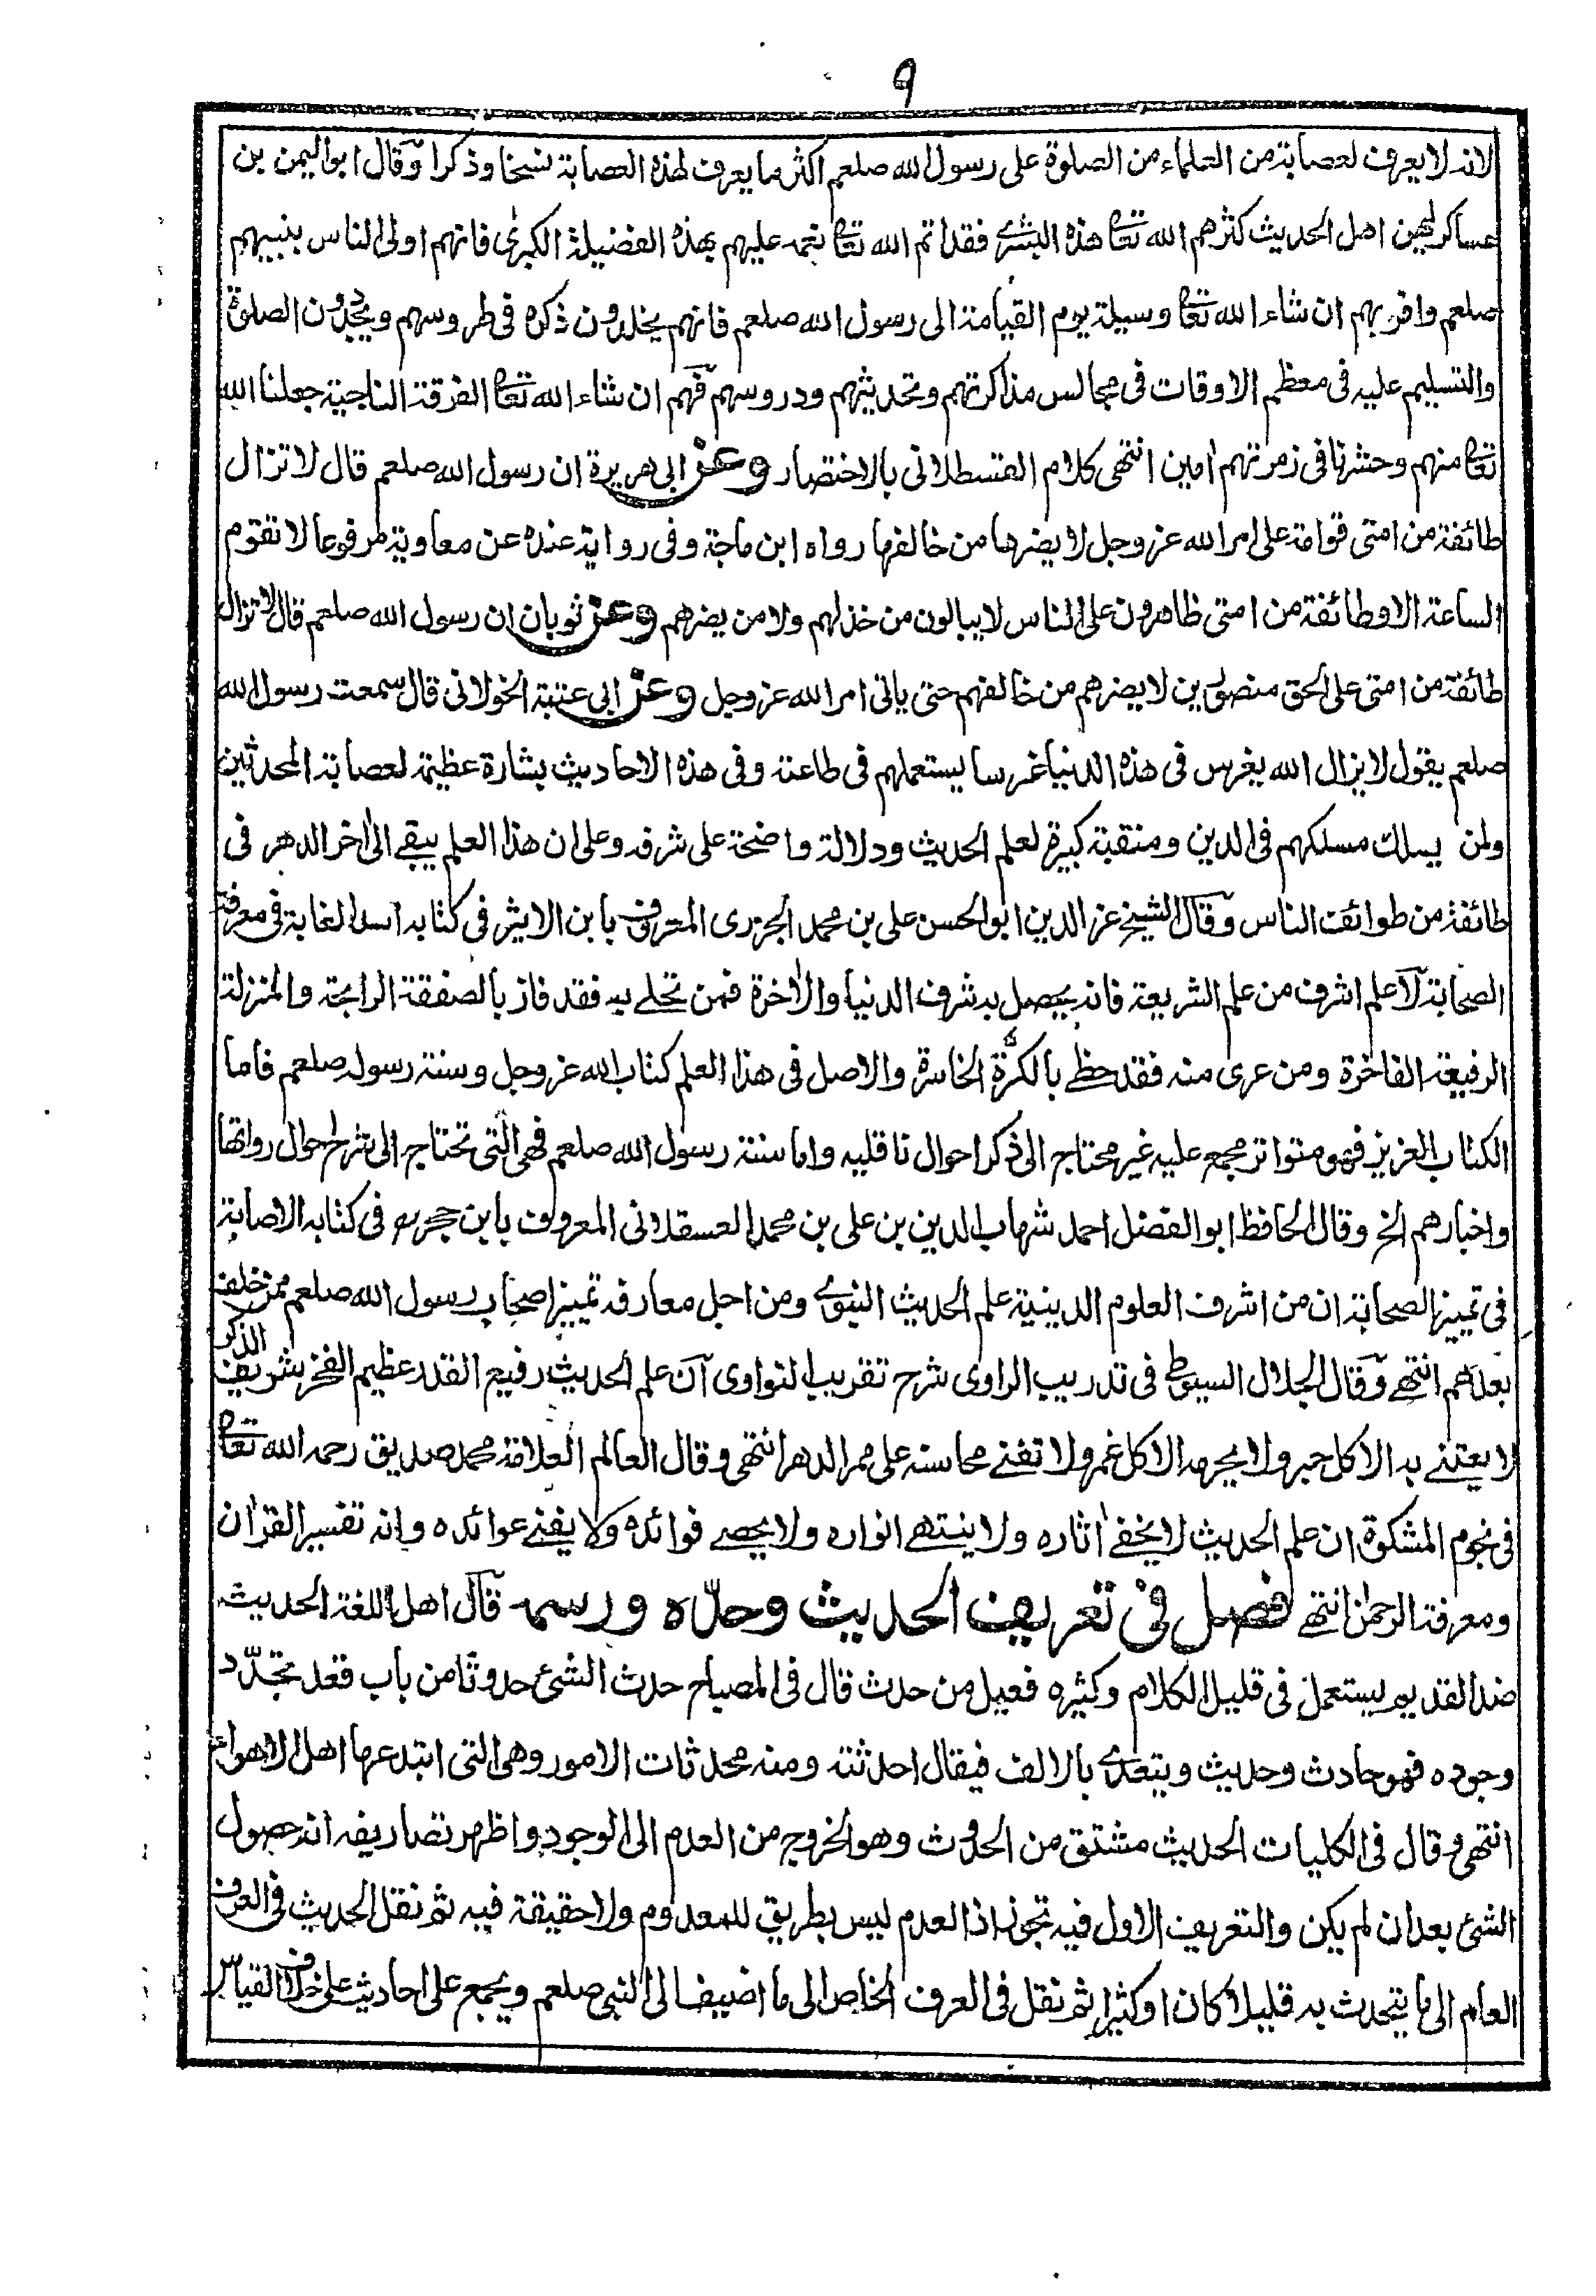 ٩
لانه لا يعرف لعصابة من العلماء من الصلوة على رسول الله صلعم اكثر ما يعرف لهذه العصابة نسخا وذكرا وقال ابو اليمن بن
عساكر ليهن اهل الحديث كثرهم الله تعا هذه البشرے فقد اتم الله تعا نعمه عليهم بهذه الفضيلة الكبرى فانهم اولى الناس بنبيهم
صلعم واقربهم ان شاء الله تعا وسيلة يوم القيامة الى رسول الله صلعم فانهم يخلدون ذكره فى طروسهم ويجددون الصلوة
والتسليم عليه فى معظم الاوقات فى مجالس مذاكرتهم وتحديثهم ودروسهم فهم ان شاء الله تعا الفرقة الناجية جعلنا الله
تعا منهم وحشرنا فى زمرتهم اٰمين انتهى كلام القسطلانى بالاختصار وعن ابى هريرة ان رسول الله صلعم قال لا تزال
طائفة من امتى قوامة على امر الله عز وجل لا يضرها من خالفها رواه ابن ماجة وفى رواية عنده عن معاوية مرفوعا لا تقوم
الساعة الا وطائفة من امتى ظاهرون على الناس لا يبالون من خذلهم ولا من يضرهم وعن ثوبان ان رسول الله صلعم قال لا تزال
طائفة من امتى على الحق منصورين لا يضرهم من خالفهم حتى ياتى امر الله عز وجل وعن ابى عتبة الخولانى قال سمعت رسول الله
صلعم يقول لا يزال الله يغرس فى هذه الدنيا غرسا يستعملهم فى طاعته وفى هذه الاحاديث بشارة عظيمة لعصابة المحدثين
ولمن يسلك مسلكهم فى الدين ومنقبة كبيرة لعلم الحديث ودلالة واضحة على شرفه وعلى ان هذا العلم يبقے الى اٰخر الدهر فى
طائفة من طوائف الناس وقال الشيخ عز الدين ابو الحسن على بن محمد الجزرى المعروف بابن الاثير فى كتابه اسد الغابة فى معرفة
الصحابة لا علم اشرف من علم الشريعة فانه يحصل به شرف الدنيا والاٰخرة فمن تحلے به فقد فاز بالصفقة الرابحة والمنزلة
الرفيعة الفاخرة ومن عرى منه فقد حظے بالكرّة الخاسرة والاصل فى هذا العلم كتاب الله عز وجل وسنة رسوله صلعم فاما
الكتاب العزيز فهو متواتر مجمع عليه غير محتاج الى ذكر احوال ناقليه واما سنة رسول الله صلعم فهى التى تحتاج الى شرح احوال رواتها
واخبارهم الخ وقال الحافظ ابو الفضل احمد شهاب الدين بن على بن محمد العسقلانى المعروف بابن حجر فى كتابه الاصابة
فى تمييز الصحابة ان من اشرف العلوم الدينية علم الحديث النبوے ومن اجل معارفه تمييز اصحاب رسول الله صلعم ممن خلف
بعدهم انتهے وقال الجلال السيوطے فى تدريب الراوى شرح تقريب النواوى ان علم الحديث رفيع القدر عظيم الفخر شريف الذكر
لا يعتنے به الا كل حبر ولا يحرمه الا كل غمر ولا تفنے محاسنه على ممر الدهر انتهى وقال العالم العلامة محمد صديق رحمه الله تعا
فى نجوم المشكوة ان علم الحديث لا يخفے اٰثاره ولا ينتهے انواره ولا يحصے فوائده ولا يفنے عوائده وانه تفسير القراٰن
ومعرفة الرحمٰن انتهے فصل فى تعريف الحديث وحدّه ورسمه قال اهل اللغة الحديث
ضد القديم ليستعمل فى قليل الكلام وكثيره فعيل من حدث قال فى المصباح حدث الشئ حدوثا من باب قعد تجدّد
وجوده فهو حادث وحديث ويتعدے بالالف فيقال احدثته ومنه محدثات الامور وهى التى ابتدعها اهل الاهواء
انتهى وقال فى الكليات الحديث مشتق من الحدوث وهو الخروج من العدم الى الوجود واظهر تصاريفه انه حصول
الشئ بعد ان لم يكن والتعريف الاول فيه تجوز اذ العدم ليس بطريق للمعدوم ولا حقيقة فيه ثم نقل الحديث فى العرف
العام الى ما يتحدث به قليلا كان او كثيرا ثم نقل فى العرف الخاص الى ما اضيف الى النبى صلعم ويجمع على احاديث على خلاف القياس